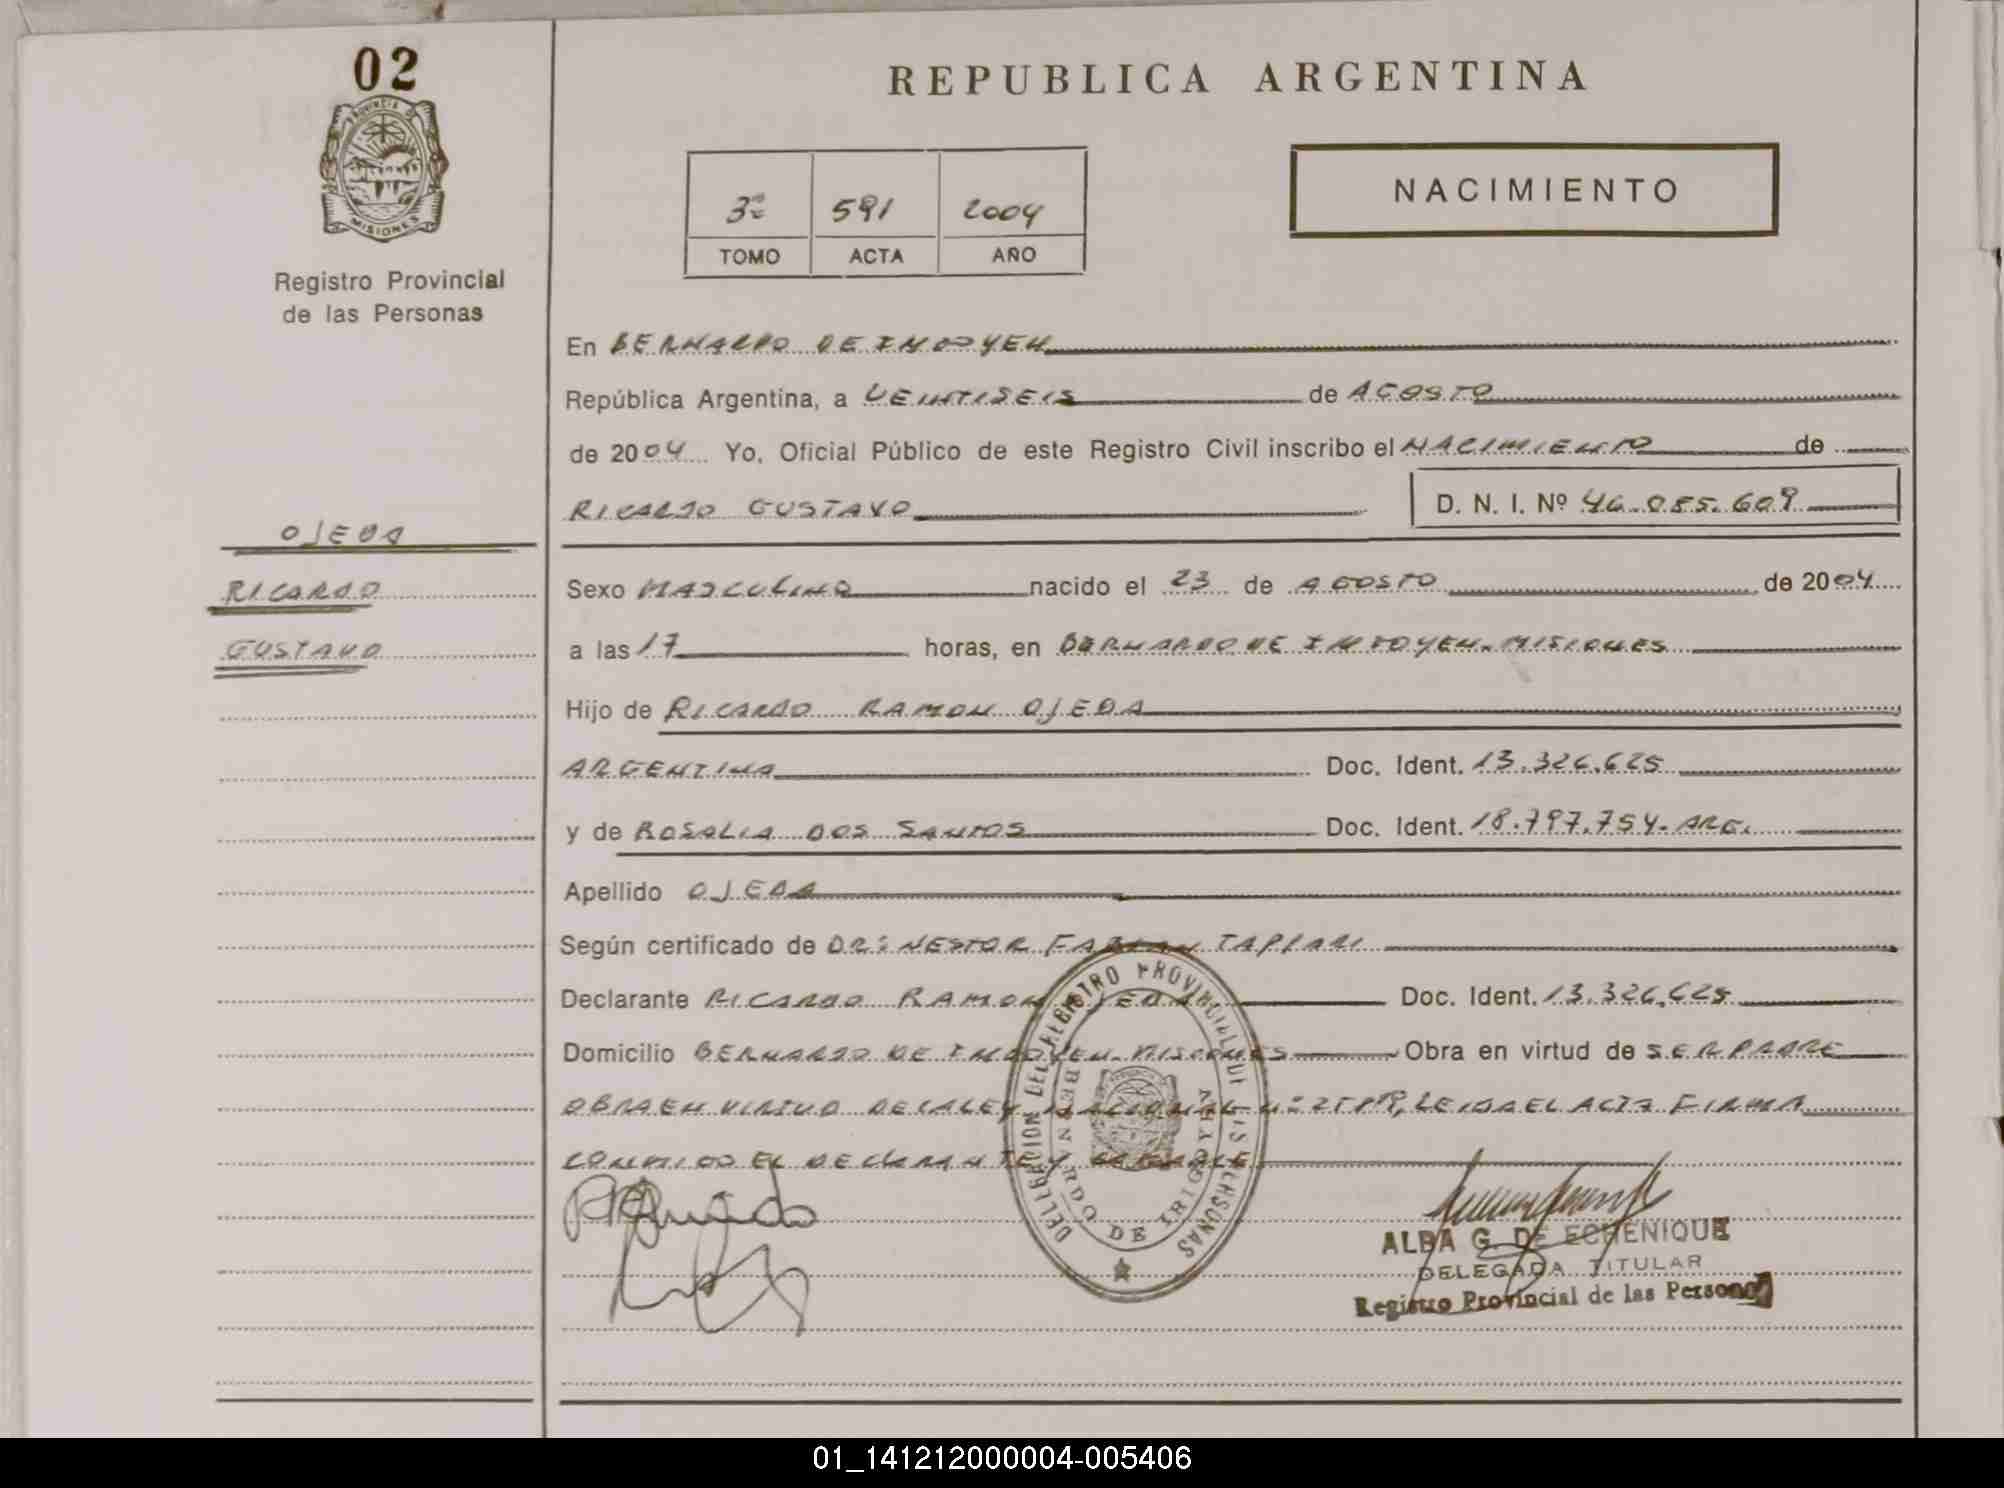 02
PROVINCIA DE
MISIONES
Registro Provincial
de las Personas
OJEDA
RICARDO
GUSTAVO
REPUBLICA ARGENTINA
3º 591 2004
TOMO ACTA AÑO
NACIMIENTO
En BERNARDO DE IRIGOYEN
República Argentina, a VEINTISEIS de AGOSTO
de 2004 Yo, Oficial Público de este Registro Civil inscribo el NACIMIENTO de
RICARDO GUSTAVO D. N. I. Nº 46.085.609
Sexo MASCULINO nacido el 23 de AGOSTO de 2004
a las 17 horas, en BERNARDO DE IRIGOYEN. MISIONES
Hijo de RICARDO RAMON OJEDA
ARGENTINA Doc. Ident. 13.326.625
y de ROSALIA DOS SANTOS Doc. Ident. 18.797.754. ARG.
Apellido OJEDA
Según certificado de DR: NESTOR FABIAN TAPPARI
Declarante RICARDO RAMON OJEDA Doc. Ident. 13.326.625
Domicilio BERNARDO DE IRIGOYEN. MISIONES Obra en virtud de SER PADRE
OBRA EN VIRTUD DE LA LEY NACIONAL Nº LEIDA EL ACTA FIRMA
CONMIGO EL DECLARANTE Y
DELEGACION DEL REGISTRO PROVINCIAL DE LAS PERSONAS
BERNARDO DE IRIGOYEN
ALBA G. DE ECHENIQUE
DELEGADA TITULAR
Registro Provincial de las Personas
01_141212000004-005406